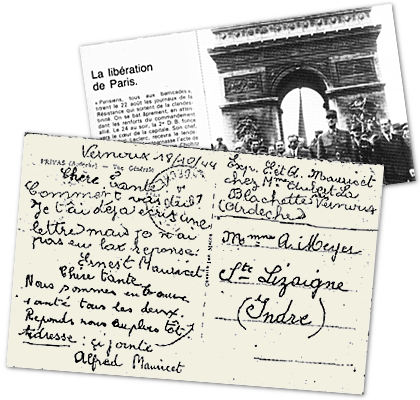 La libération
de Paris.
« Parisiens, tous aux barricades»,
titrent le 22 août les journaux de la
Résistance qui sortent de la clandes-
tinité. On se bat âprement, en atten-
dant les renforts du commandement
allié. Le 24 au soir, la 2e D.B. fonce
vers le cœur de la capitale. Son chef,
Leclerc, recevra le lende
l'acte de
Vernoux 18/10/44
PRIVAS (Ardèche) - Vue Générale
Chère Tante
Comment vas-tu?
Je t'ai déjà écris une
lettre mais je n'ai
pas eu la réponse.
Ernest Mauricet
Chère tante
Nous sommes en bonne
santé tous les deux.
Réponds nous au plus tôt.
Adresse: ci jointe
Alfred Mauricet
Exp. E. et A. Mauricet
chez Mme
Blachette Vernoux
(Ardèche)
Mme A. Meyer
Ste Lizaigne
(Indre)